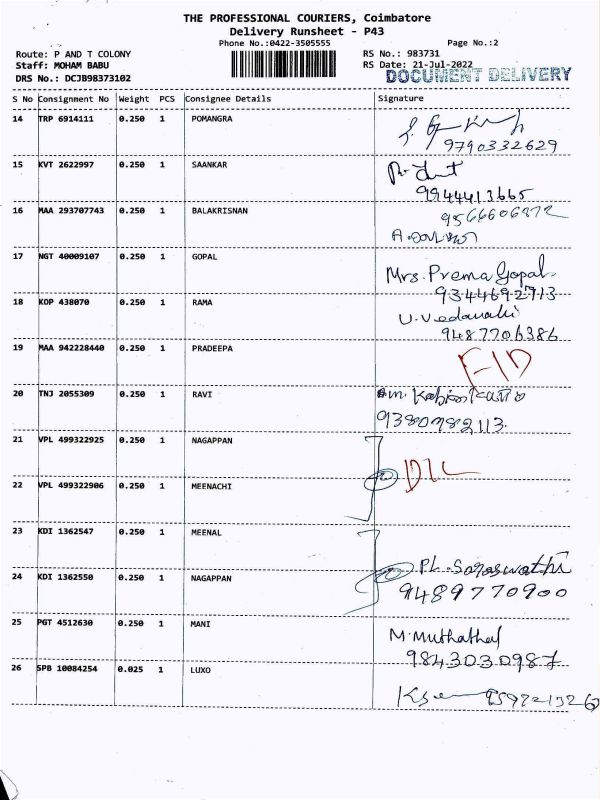 THE PROFESSIONAL COURIERS, Coimbatore
Delivery Runsheet - P43
Phone No.:0422-3505555
Page No.:2
Route: P AND T COLONY
RS No.: 983731
Staff: MOHAM BABU
RS Date: 21-Jul-2022
DOCUMENT DELIVERY
DRS No.: DCJB98373102
S No Consignment No Weight PCS Consignee Details Signature
14 TRP 6914111 0.250 1 POMANGRA
9790332629
15 KVT 2622997 0.250 1 SAANKAR
9944413665
16 MAA 293707743 0.250 1 BALAKRISNAN
17 NGT 40009107 0.250 1 GOPAL
Mrs. Prema Gopal.
9344692713
18 KOP 438070 0.250 1 RAMA
9487706386
19 MAA 942228440 0.250 1 PRADEEPA
20 TNJ 2055309 0.250 1 RAVI
21 VPL 499322925 0.250 1 NAGAPPAN
22 VPL 499322906 0.250 1 MEENACHI
23 KDI 1362547 0.250 1 MEENAL
24 KDI 1362550 0.250 1 NAGAPPAN
PL. Saraswathi
9489770900
25 PGT 4512630 0.250 1 MANI
M. Muthathal
9843030987
26 SPB 10084254 0.025 1 LUXO